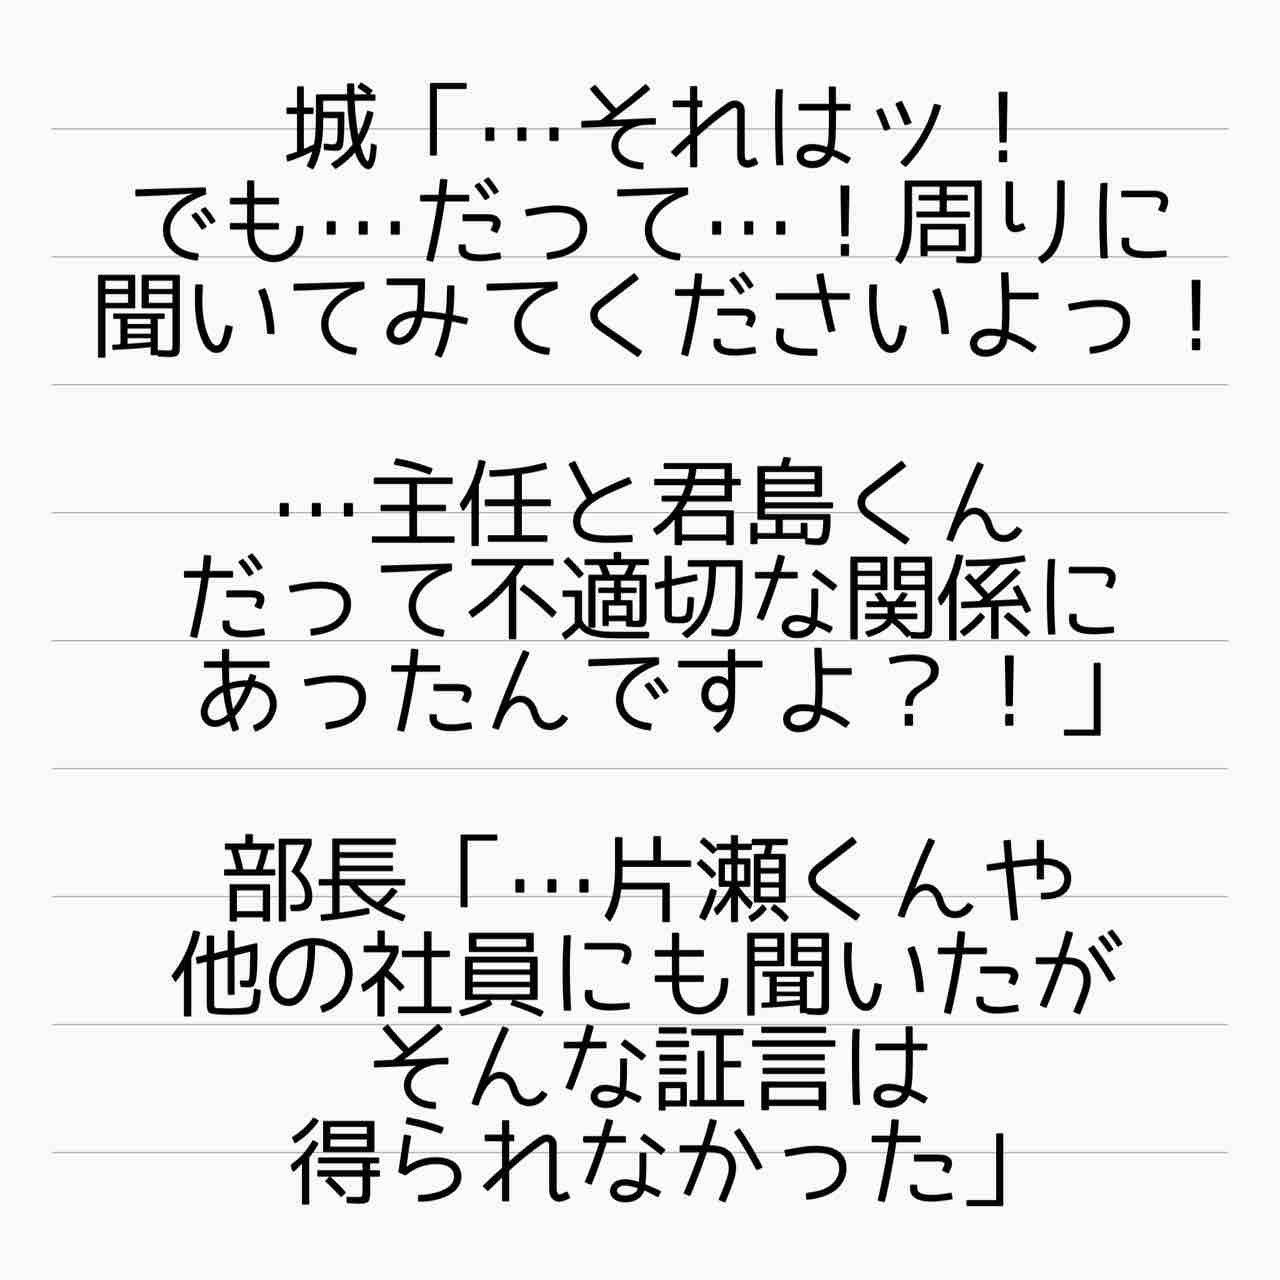 城「…それはッ！
でも…だって…！周りに
聞いてみてくださいよっ！
…主任と君島くん
だって不適切な関係に
あったんですよ？！」
部長「…片瀬くんや
他の社員にも聞いたが
そんな証言は
得られなかった」